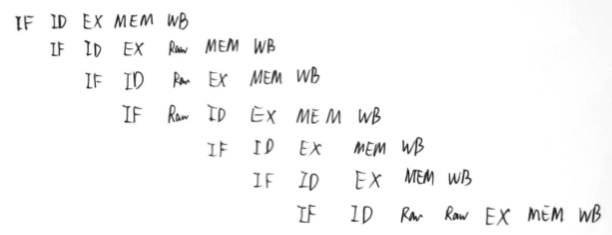 IF ID EX MEM WB
IF ID EX Raw MEM WB
IF ID Raw EX MEM WB
IF Raw ID EX MEM WB
IF ID EX MEM WB
IF ID EX MEM WB
IF ID Raw Raw EX MEM WB